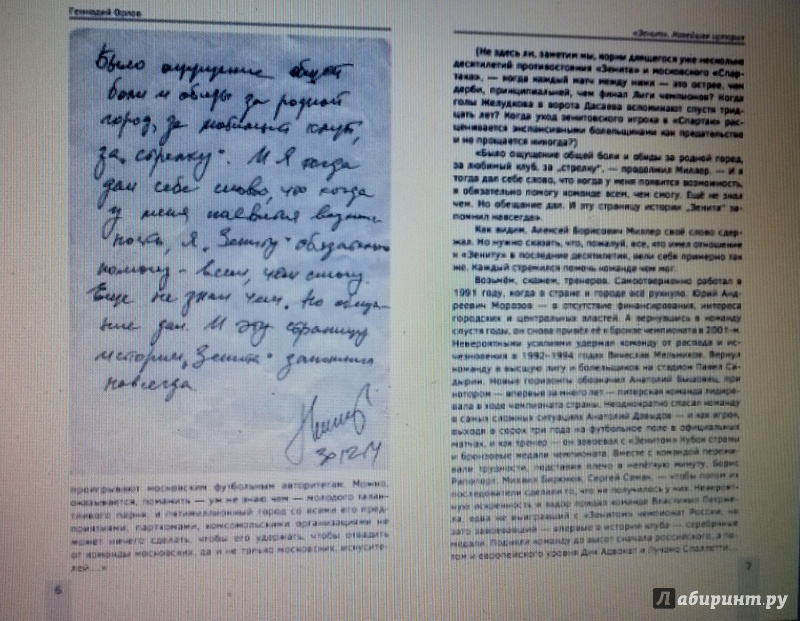 Геннадий Орлов
Было ощущение общей
боли и обиды за родной
город, за любимый клуб,
за „стрелку". И я тогда
дал себе слово, что когда
у меня появится возмож-
ность, я „Зениту" обязательно
помогу - всем, чем смогу.
Еще не знал чем. Но обеща-
ние дал. И эту страницу
истории „Зенита" запомнил
навсегда
30.12.14
проигрывают московским футбольным авторитетам. Можно,
оказывается, поманить — уж не знаю чем — молодого талан-
тливого парня, и пятимиллионный город со всеми его пред-
приятиями, парткомами, комсомольскими организациями не
может ничего сделать, чтобы его удержать, чтобы отвадить
от команды московских, да и не только московских, искусите-
лей....»
6
«Зенит». Новейшая история
(Не здесь ли, заметим мы, корни длящегося уже несколько
десятилетий противостояния «Зенита» и московского «Спар-
така», — когда каждый матч между ними — это острее, чем
дерби, принципиальней, чем финал Лиги чемпионов? Когда
голы Желудкова в ворота Дасаева вспоминают спустя трид-
цать лет? Когда уход зенитовского игрока в «Спартак» рас-
ценивается экспансивными болельщиками как предательство
и не прощается никогда?)
«Было ощущение общей боли и обиды за родной город,
за любимый клуб, за „стрелку", — продолжил Миллер. — И я
тогда дал себе слово, что когда у меня появится возможность,
я обязательно помогу команде всем, чем смогу. Ещё не знал
чем. Но обещание дал. И эту страницу истории „Зенита" за-
помнил навсегда».
Как видим, Алексей Борисович Миллер своё слово сдер-
жал. Но нужно сказать, что, пожалуй, все, кто имел отношение
к «Зениту» в последние десятилетия, вели себя примерно так
же. Каждый стремился помочь команде чем мог.
Возьмём, скажем, тренеров. Самоотверженно работал в
1991 году, когда в стране и городе всё рухнуло, Юрий Анд-
реевич Морозов — в отсутствие финансирования, интереса
городских и центральных властей. А вернувшись в команду
спустя годы, он снова привёл её к бронзе чемпионата в 2001-м.
Невероятными усилиями удержал команду от распада и ис-
чезновения в 1992–1994 годах Вячеслав Мельников. Вернул
команду в высшую лигу и болельщиков на стадион Павел Са-
дырин. Новые горизонты обозначил Анатолий Бышовец, при
котором — впервые за много лет — питерская команда лидиро-
вала в ходе чемпионата страны. Неоднократно спасал команду
в самых сложных ситуациях Анатолий Давыдов — и как игрок,
выходя в сорок три года на футбольное поле в официальных
матчах, и как тренер — он завоевал с «Зенитом» Кубок страны
и бронзовые медали чемпионата. Вместе с командой пережи-
вали трудности, подставив плечо в нелёгкую минуту, Борис
Рапопорт, Михаил Бирюков, Сергей Семак, — чтобы потом их
последователи сделали то, что не получилось у них. Невероят-
ную искренность и задор придал команде Властимил Петрже-
ла, едва не выигравший с «Зенитом» чемпионат России, но
зато завоевавший — впервые в истории клуба — серебряные
медали. Подняли команду до высот сначала российского, а по-
том и европейского уровня Дик Адвокат и Лучано Спаллетти....
7
Лабиринт.ру